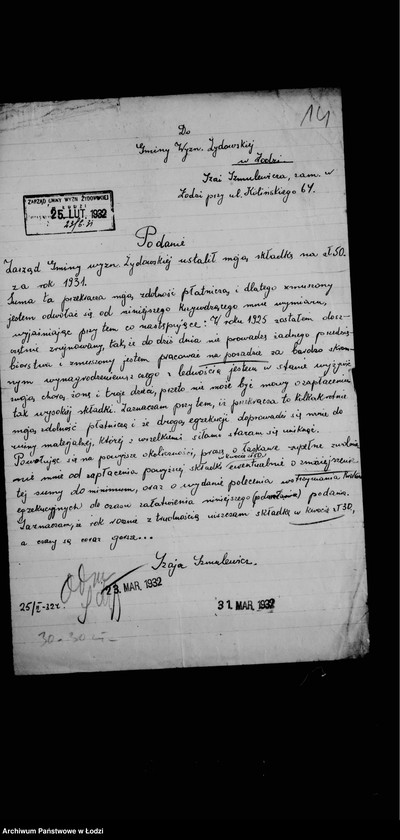 14
Do
Gminy Wyzn. Żydowskiej
w Łodzi
Szai Szmulewicza, zam. w
Łodzi przy ul. Kilińskiego 64.
ZARZĄD GMINY WYZN. ŻYDOWSKIEJ
25. LUT. 1932
Podanie
Zarząd Gminy wyzn. Żydowskiej ustalił moją składkę na zł. 50.
za rok 1931.
Suma ta przekracza moją zdolność płatniczą, i dlatego zmuszony
jestem odwołać się od niniejszego krzywdzącego mnie wymiaru,
wyjaśniając przy tem co następuje: W roku 1925 zostałem dosz-
czętnie zrujnowany, tak, iż do dziś dnia nie prowadzę żadnego przedsię-
biorstwa i zmuszony jestem pracować na posadzie za bardzo skrom-
nym wynagrodzeniem, z czego i ledwością jestem w stanie wyżywić
moją chorą żonę i troje dzieci, przeto nie może być mowy o zapłaceniu
tak wysokiej składki. Zaznaczam przy tem, iż przekracza to kilkakrotnie
moją zdolność płatniczą i że drogą egzekucji doprowadzi się mnie do
ruiny materjalnej, której z wszelkiemi siłami staram się uniknąć.
Powołując się na powyższe okoliczności, proszę o łaskawe zupełne zwolnie-
nie mnie od zapłacenia powyższej składki ewentualnie o zmniejszenie
tej sumy do minimum, oraz o wydanie polecenia wstrzymania kroków
egzekucyjnych do czasu załatwienia niniejszego podania.
Zaznaczam, że rok rocznie z trudnością uiszczam składkę w kwocie zł 30,
a czasy są coraz gorsze...
Szaja Szmulewicz.
25/II-32 r.
23. MAR. 1932
31. MAR. 1932
30.-
Archiwum Państwowe w Łodzi